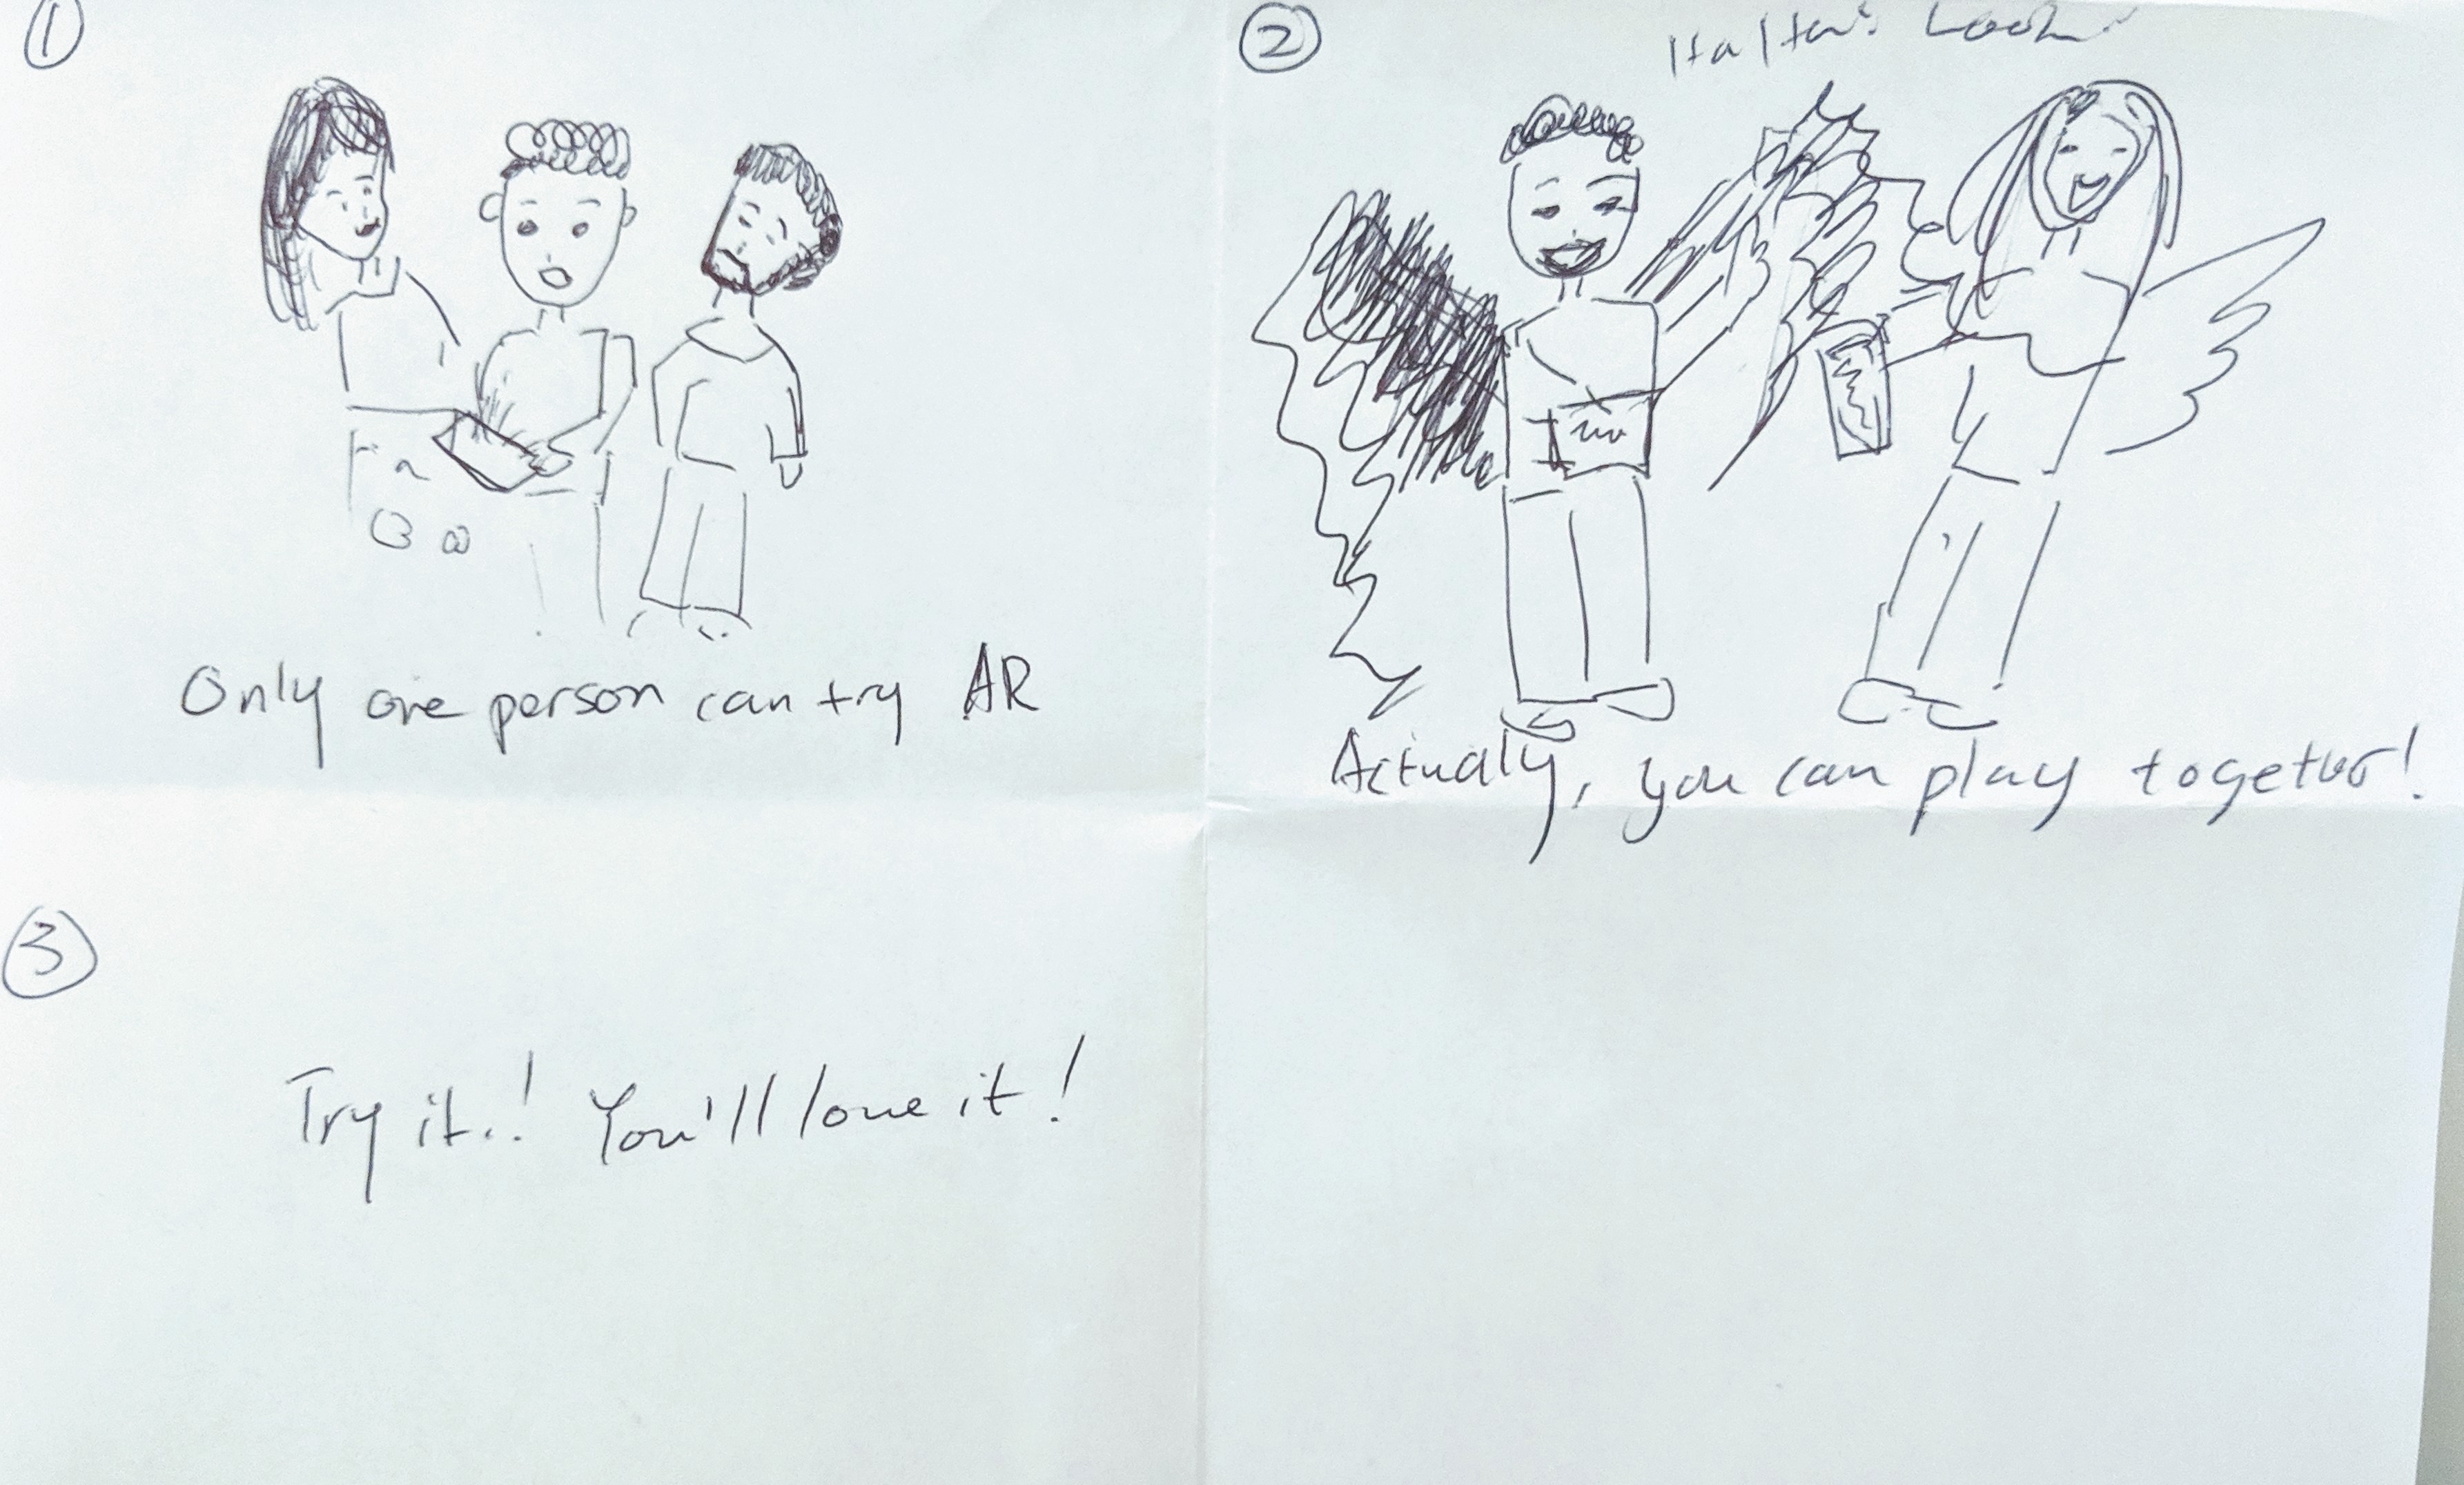 1
Only one person can try AR
2
Look
Actually, you can play together!
3
Try it.! You'll love it!